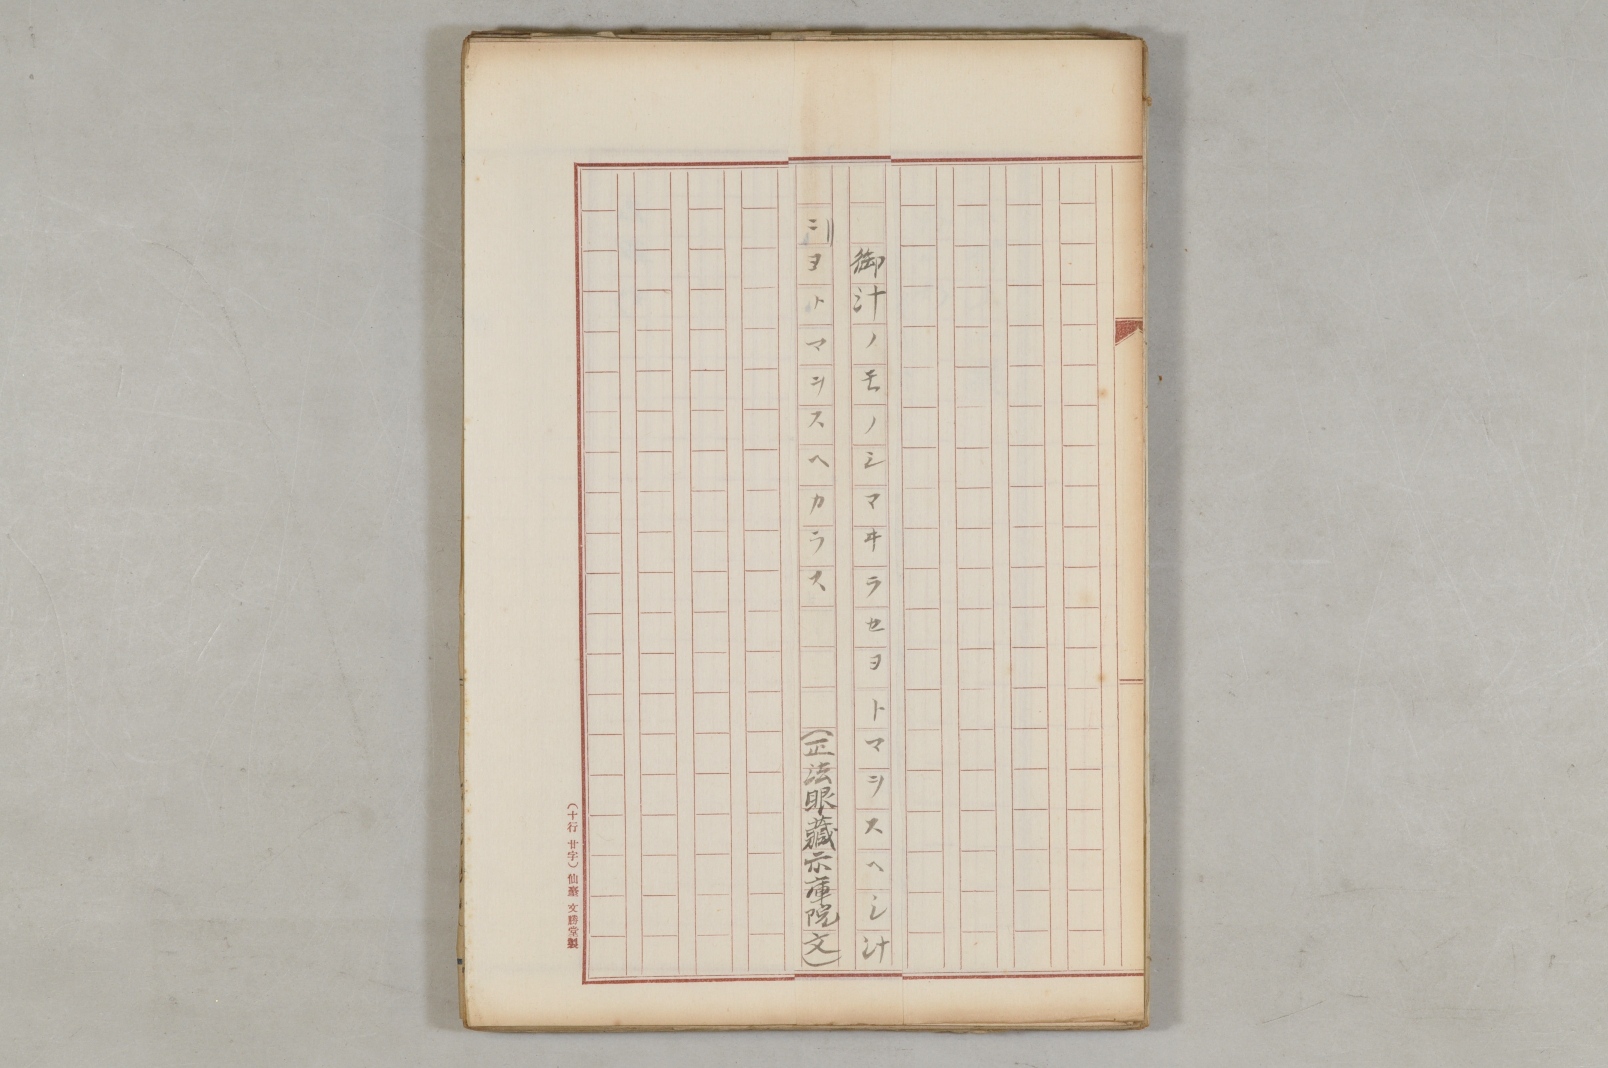 御汁ノモノシマヰラセヨトマヲスヘシ汁
ニヨトマヲスヘカラス　(正法眼藏示庫院文)
(十行 廿字) 仙臺 文勝堂製